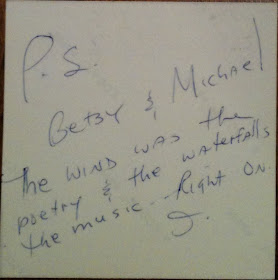 P.S.
Betsy & Michael
The WIND WAS the
poetry & the waterfalls
the music. Right ON
J.